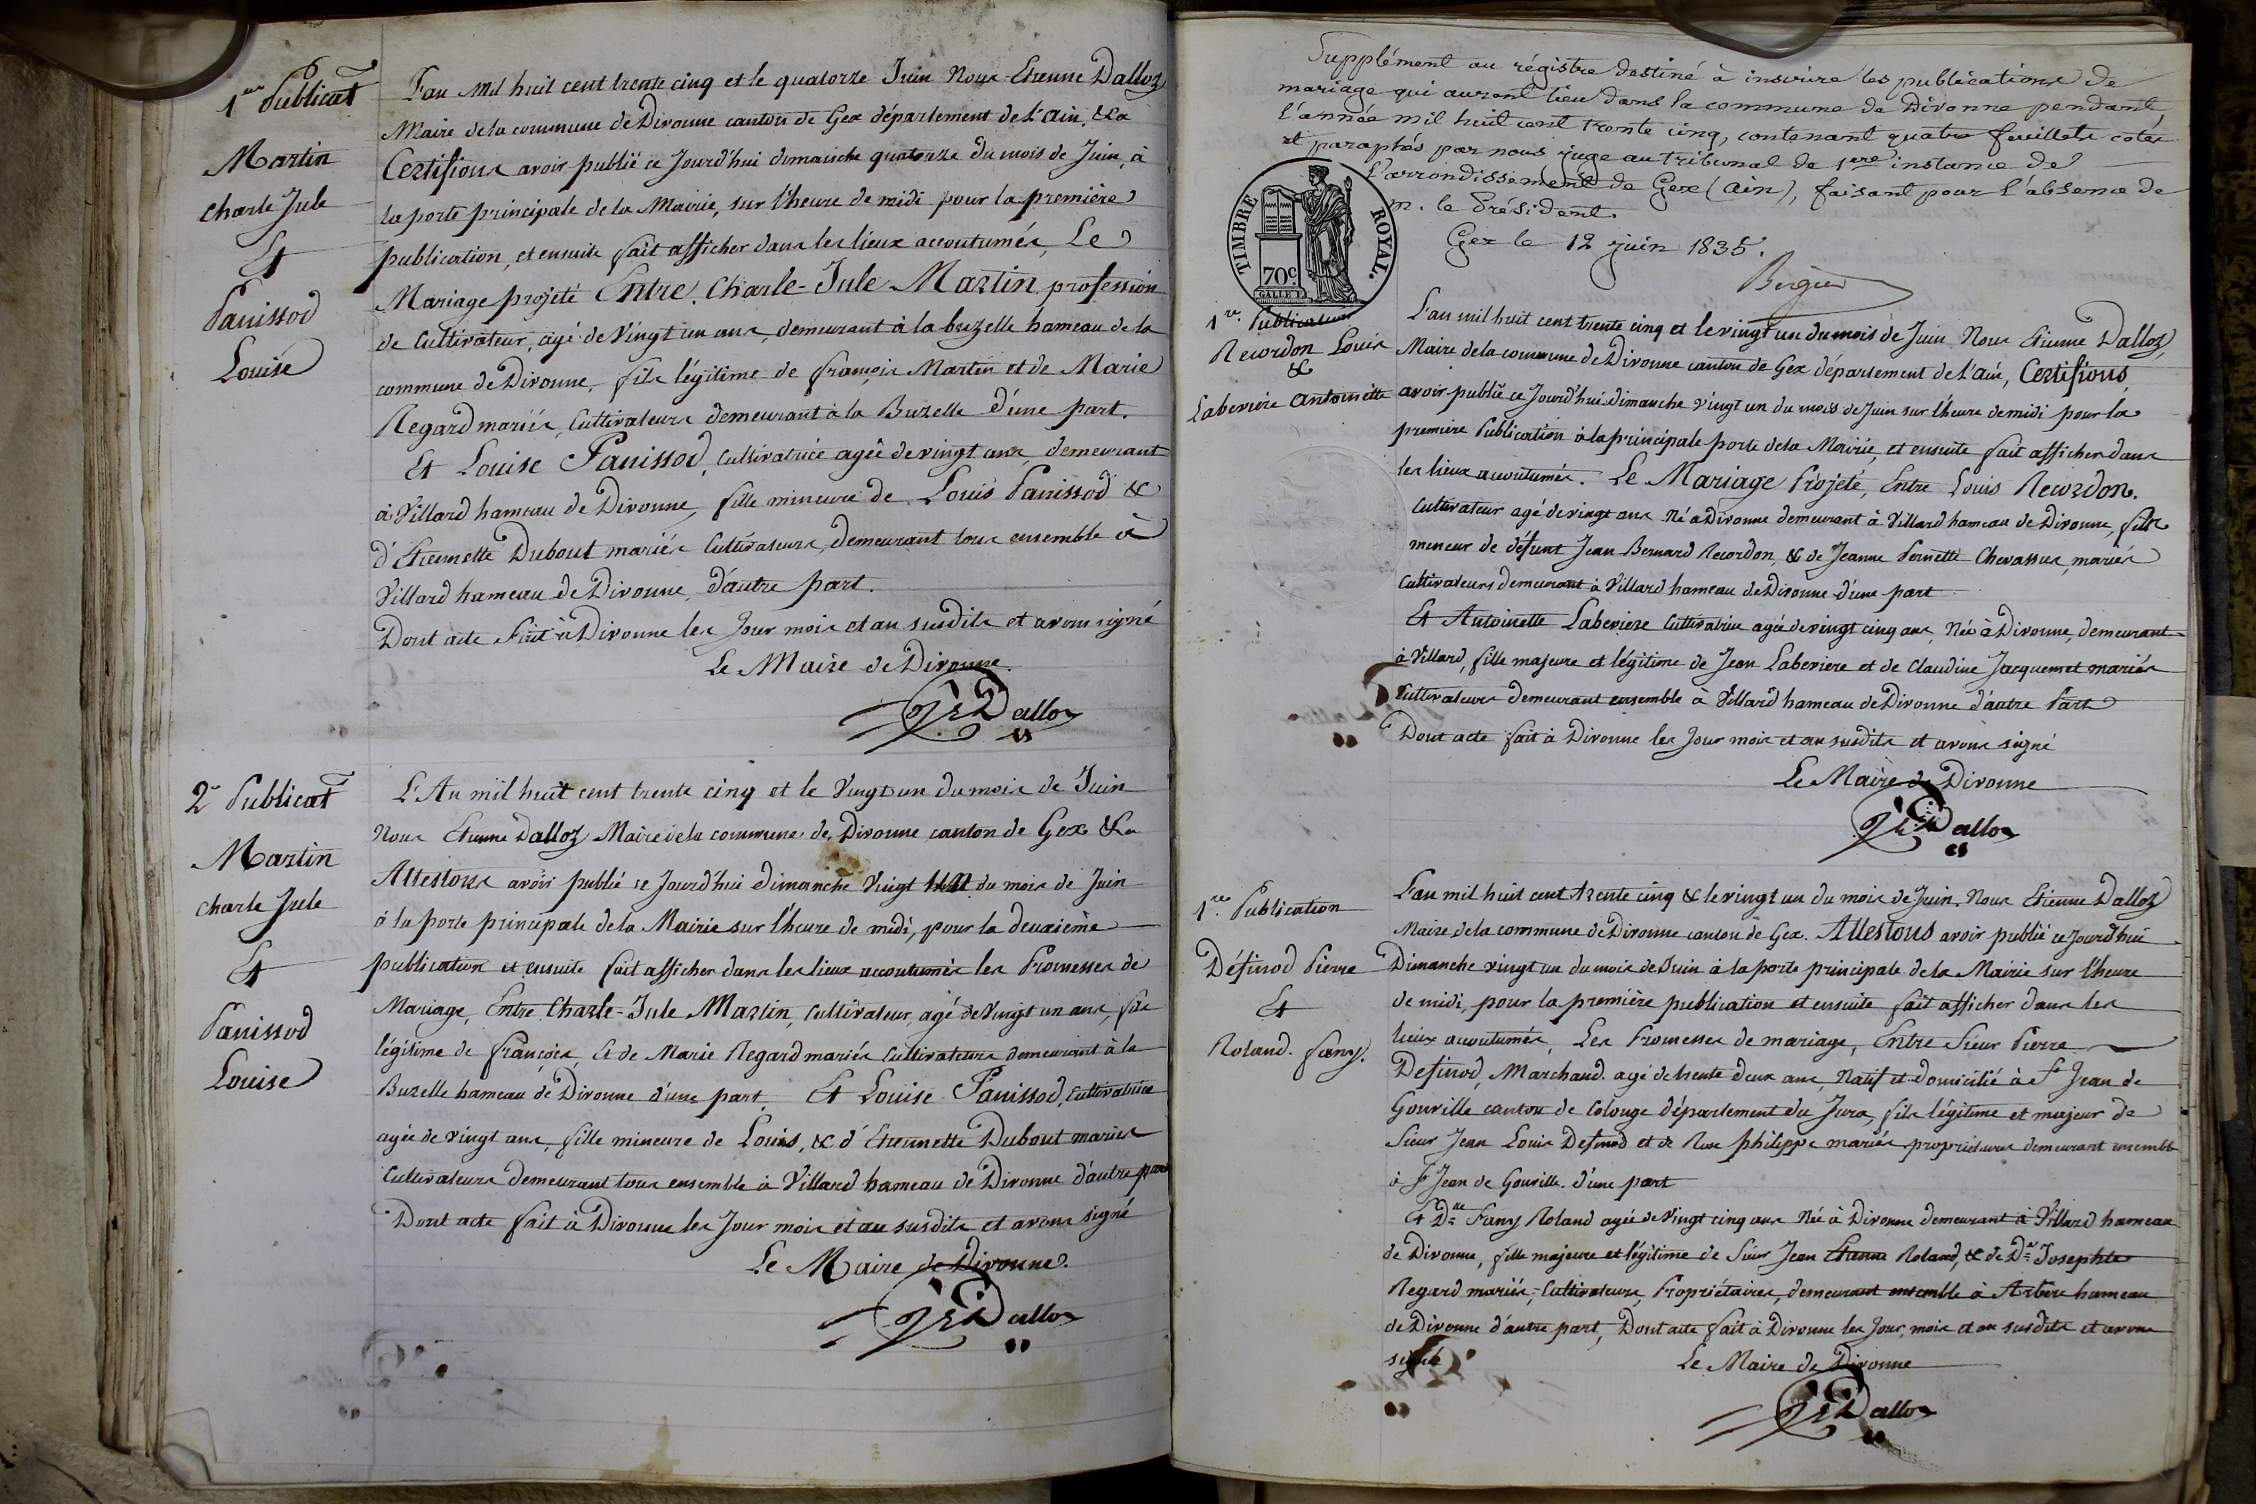 1re Publicat
Martin
Charle Jule
Et
Panissod
Louise
L'an mil huit cent trente cinq et le quatorze Juin Nous Etienne Dalloz
Maire de la commune de Divonne canton de Gex département de l'Ain, &a
Certifions avoir publié ce Jourd'hui dimanche quatorze du mois de Juin, à
la porte principale de la Mairie, sur l'heure de midi pour la première
publication, et ensuite fait afficher dans les lieux accoutumés, Le
Mariage projeté Entre Charle-Jule Martin profession
de Cultivateur, agé de vingt un ans, demeurant à la buzelle hameau de la
commune de Divonne, fils légitime de françois Martin et de Marie
Regard mariés, Cultivateurs demeurant à la Buzelle d'une part.
Et Louise Panissod, Cultivatrice agée de vingt ans, demeurant
à Villard hameau de Divonne, fille mineure de Louis Panissod &
d'Etiennette Dubout mariés Cultivateurs, demeurant tous ensemble à
Villard hameau de Divonne, d'autre part.
Dont acte Fait à Divonne les Jour mois et an susdits et avons signé
Le Maire de Divonne.
Dalloz
2e Publicat
Martin
Charle Jule
Et
Panissod
Louise
L'An mil huit cent trente cinq et le Vingt un du mois de Juin
Nous Etienne Dalloz Maire de la commune de Divonne canton de Gex &a
Attestons avoir publié ce Jourd'hui dimanche Vingt un du mois de Juin
à la porte principale de la Mairie sur l'heure de midi, pour la deuxième
publication et ensuite fait afficher dans les lieux accoutumés les Promesses de
Mariage, Entre Charle-Jule Martin, Cultivateur, agé de Vingt un ans, fils
légitime de françois, et de Marie Regard mariés Cultivateurs demeurant à la
Buzelle hameau de Divonne d'une part. Et Louise Panissod, Cultivatrice
agée de vingt ans, fille mineure de Louis, & d'Etiennette Dubout mariés
Cultivateurs demeurant tous ensemble à Villard hameau de Divonne d'autre part
Dont acte fait à Divonne les Jour mois et an susdits et avons signé
Le Maire de Divonne.
Dalloz
Supplément au régistre destiné à inscrire les publications de
mariage qui auront lieu dans la commune de Divonne pendant
l'année mil huit cent trente cinq, contenant quatre feuillets cotés
et paraphés par nous juge au tribunal de 1ere instance de
l'arrondissement de Gex (Ain), faisant pour l'absence de
m. le Président.
Gex le 12 juin 1835.
TIMBRE ROYAL.
70c
1re Publication
Recordon Louis
&
Laberiere Antoinette
L'an mil huit cent trente cinq et le vingt un du mois de Juin Nous Etienne Dalloz,
Maire de la commune de Divonne canton de Gex département de l'ain, Certifions,
avoir publié ce Jourd'hui dimanche vingt un du mois de Juin sur l'heure de midi pour la
première Publication à la principale porte de la Mairie, et ensuite fait afficher dans
les lieux accoutumés. Le Mariage Projeté, Entre Louis Recordon.
Cultivateur agé de vingt ans né à Divonne demeurant à Villard hameau de Divonne, fils
mineur de défunt Jean Bernard Recordon, & de Jeanne Pernette Chevassus, mariés
Cultivateurs demeurant à Villard hameau de Divonne d'une part
Et Antoinette Laberiere Cultivatrice agée de vingt cinq ans, Née à Divonne, demeurant
à Villard, fille majeure et légitime de Jean Laberiere et de Claudine Jacquemet mariés
Cultivateurs demeurant ensemble à Villard hameau de Divonne d'autre Part
Dont acte fait à Divonne les Jour mois et an susdits et avons signé
Le Maire de Divonne
Dalloz
1re Publication
Définod Pierre
Et
Roland. fany.
L'an mil huit cent trente cinq & le vingt un du mois de Juin. Nous Etienne Dalloz
Maire de la commune de Divonne canton de Gex. Attestons avoir publié ce Jourd'hui
Dimanche vingt un du mois de Juin à la porte principale de la Mairie sur l'heure
de midi, pour la première publication et ensuite fait afficher dans les
lieux accoutumés, Les Promesses de mariage, Entre Sieur Pierre
Definod, Marchand. agé de trente deux ans, Natif et domicilié à St Jean de
Gouville canton de Colonge département du Jura, fils légitime et majeur de
Sieur Jean Louis Definod et de Rose Philippe mariés propriétaires demeurant ensemble
à St Jean de Gouville. d'une part
Et Dlle Fany Roland agée de Vingt cinq ans Née à Divonne demeurant à Villard hameau
de Divonne, fille majeure et légitime de Sieur Jean Etienne Roland, & de De Josephte
Regard mariés, Cultivateurs, Propriétaires, demeurant ensemble à Arbere hameau
de Divonne d'autre part, Dont acte fait à Divonne les Jour, mois et an susdits et avons
signé
Le Maire de Divonne
Dalloz